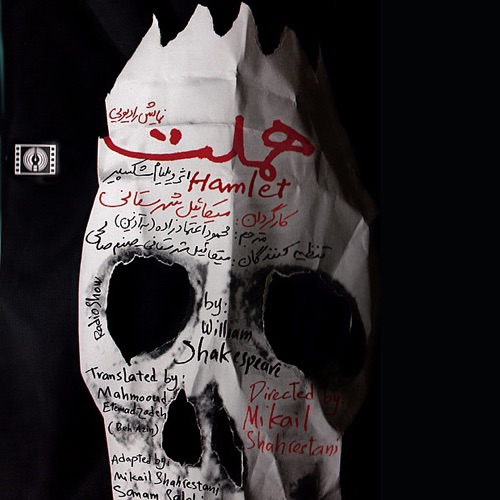 نمایش رادیویی
هملت
اثر ویلیام شکسپیر
Hamlet
کارگردان: میکائیل شهرستانی
مترجم: محمود اعتمادزاده (به‌آذین)
تنظیم کنندگان: میکائیل شهرستانی، صنم صالحی
Radio Show
by:
William
Shakespeare
Translated by:
Mahmooud
Etemadzadeh
(Beh Azin)
Directed by:
Mikail
Shahrestani
Adapted by:
Mikail Shahrestani
Sanam Salehi